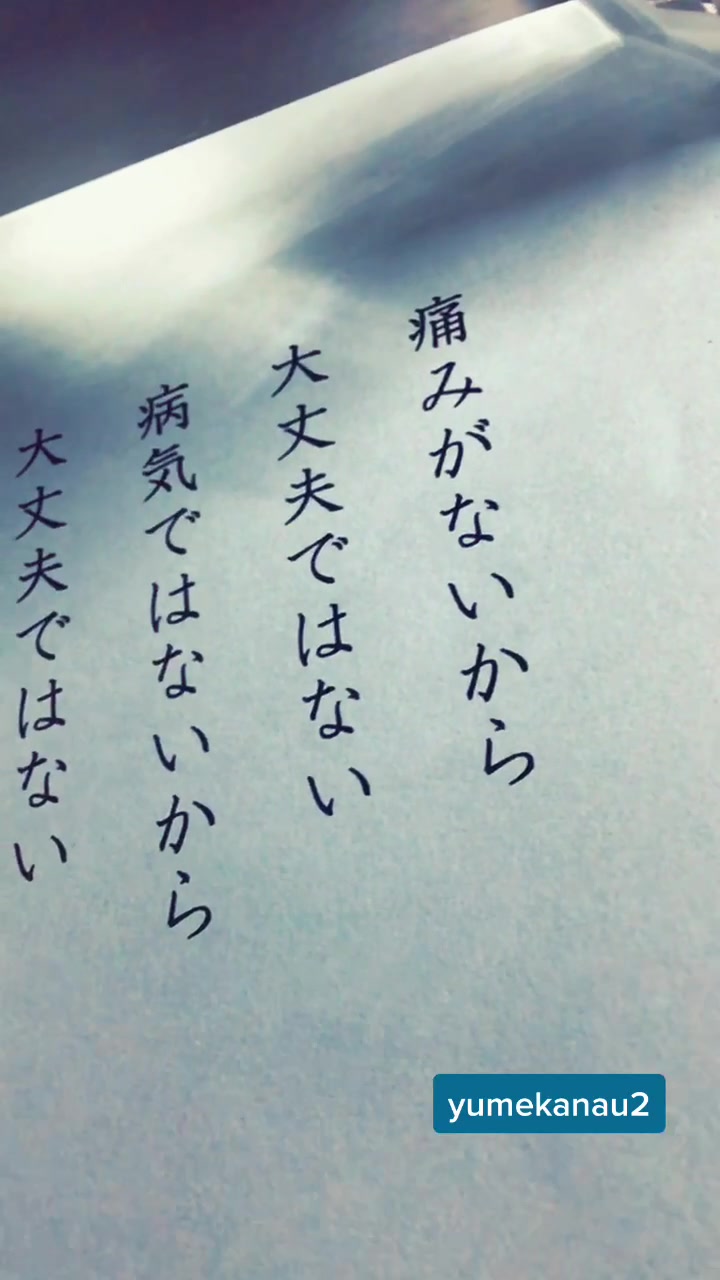 痛みがないから
大丈夫ではない
病気ではないから
大丈夫ではない
yumekanau2